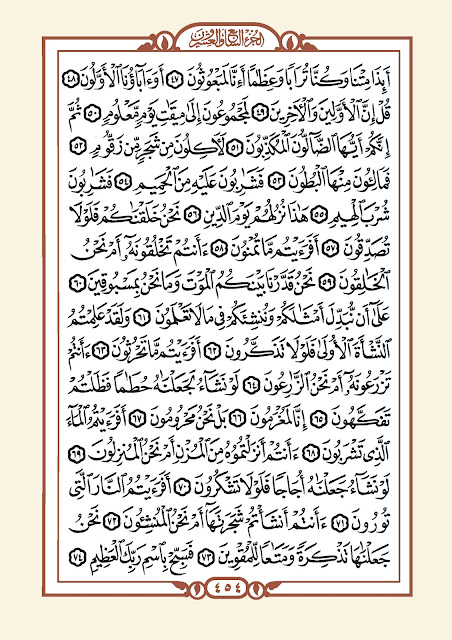 الجزء السابع والعشرون
أَيِذَا مِتْنَا وَكُنَّا تُرَابًا وَعِظَٰمًا أَءِنَّا لَمَبْعُوثُونَ ٤٧ أَوَءَابَآؤُنَا ٱلْأَوَّلُونَ ٤٨
قُلْ إِنَّ ٱلْأَوَّلِينَ وَٱلْأَخِرِينَ ٤٩ لَمَجْمُوعُونَ إِلَىٰ مِيقَٰتِ يَوْمٍ مَّعْلُومٍ ٥٠ ثُمَّ
إِنَّكُمْ أَيُّهَا ٱلضَّآلُّونَ ٱلْمُكَذِّبُونَ ٥١ لَأَكِلُونَ مِن شَجَرٍ مِّن زَقُّومٍ ٥٢
فَمَالِـُٔونَ مِنْهَا ٱلْبُطُونَ ٥٣ فَشَٰرِبُونَ عَلَيْهِ مِنَ ٱلْحَمِيمِ ٥٤ فَشَٰرِبُونَ
شُرْبَ ٱلْهِيمِ ٥٥ هَٰذَا نُزُلُهُمْ يَوْمَ ٱلدِّينِ ٥٦ نَحْنُ خَلَقْنَٰكُمْ فَلَوْلَا
تُصَدِّقُونَ ٥٧ أَفَرَءَيْتُم مَّا تُمْنُونَ ٥٨ ءَأَنتُمْ تَخْلُقُونَهُۥٓ أَمْ نَحْنُ
ٱلْخَٰلِقُونَ ٥٩ نَحْنُ قَدَّرْنَا بَيْنَكُمُ ٱلْمَوْتَ وَمَا نَحْنُ بِمَسْبُوقِينَ ٦٠
عَلَىٰٓ أَن نُّبَدِّلَ أَمْثَٰلَكُمْ وَنُنشِئَكُمْ فِى مَا لَا تَعْلَمُونَ ٦١ وَلَقَدْ عَلِمْتُمُ
ٱلنَّشْأَةَ ٱلْأُولَىٰ فَلَوْلَا تَذَكَّرُونَ ٦٢ أَفَرَءَيْتُم مَّا تَحْرُثُونَ ٦٣ ءَأَنتُمْ
تَزْرَعُونَهُۥٓ أَمْ نَحْنُ ٱلزَّٰرِعُونَ ٦٤ لَوْ نَشَآءُ لَجَعَلْنَٰهُ حُطَٰمًا فَظَلْتُمْ
تَفَكَّهُونَ ٦٥ إِنَّا لَمُغْرَمُونَ ٦٦ بَلْ نَحْنُ مَحْرُومُونَ ٦٧ أَفَرَءَيْتُمُ ٱلْمَآءَ
ٱلَّذِى تَشْرَبُونَ ٦٨ ءَأَنتُمْ أَنزَلْتُمُوهُ مِنَ ٱلْمُزْنِ أَمْ نَحْنُ ٱلْمُنزِلُونَ ٦٩
لَوْ نَشَآءُ جَعَلْنَٰهُ أُجَاجًا فَلَوْلَا تَشْكُرُونَ ٧٠ أَفَرَءَيْتُمُ ٱلنَّارَ ٱلَّتِى
تُورُونَ ٧١ ءَأَنتُمْ أَنشَأْتُمْ شَجَرَتَهَآ أَمْ نَحْنُ ٱلْمُنشِـُٔونَ ٧٢ نَحْنُ
جَعَلْنَٰهَا تَذْكِرَةً وَمَتَٰعًا لِّلْمُقْوِينَ ٧٣ فَسَبِّحْ بِٱسْمِ رَبِّكَ ٱلْعَظِيمِ ٧٤
٤٥٤